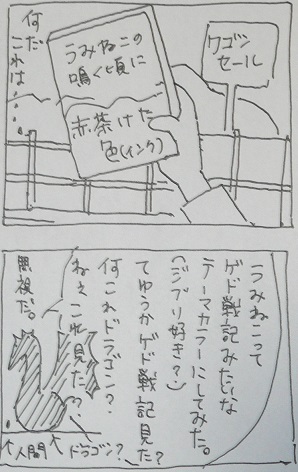 ワゴン
セール
うみねこの
鳴く頃に
赤茶けた
色(インク)
何だ
これは・・・・
うみねこって
ゲド戦記みたいな
テーマカラーにしてみた。
(ジブリ好き?)
てゆうかゲド戦記見た?
何これドラゴン?
ねぇこれ見た?
無視だ。
↑人間
↑ドラゴン?